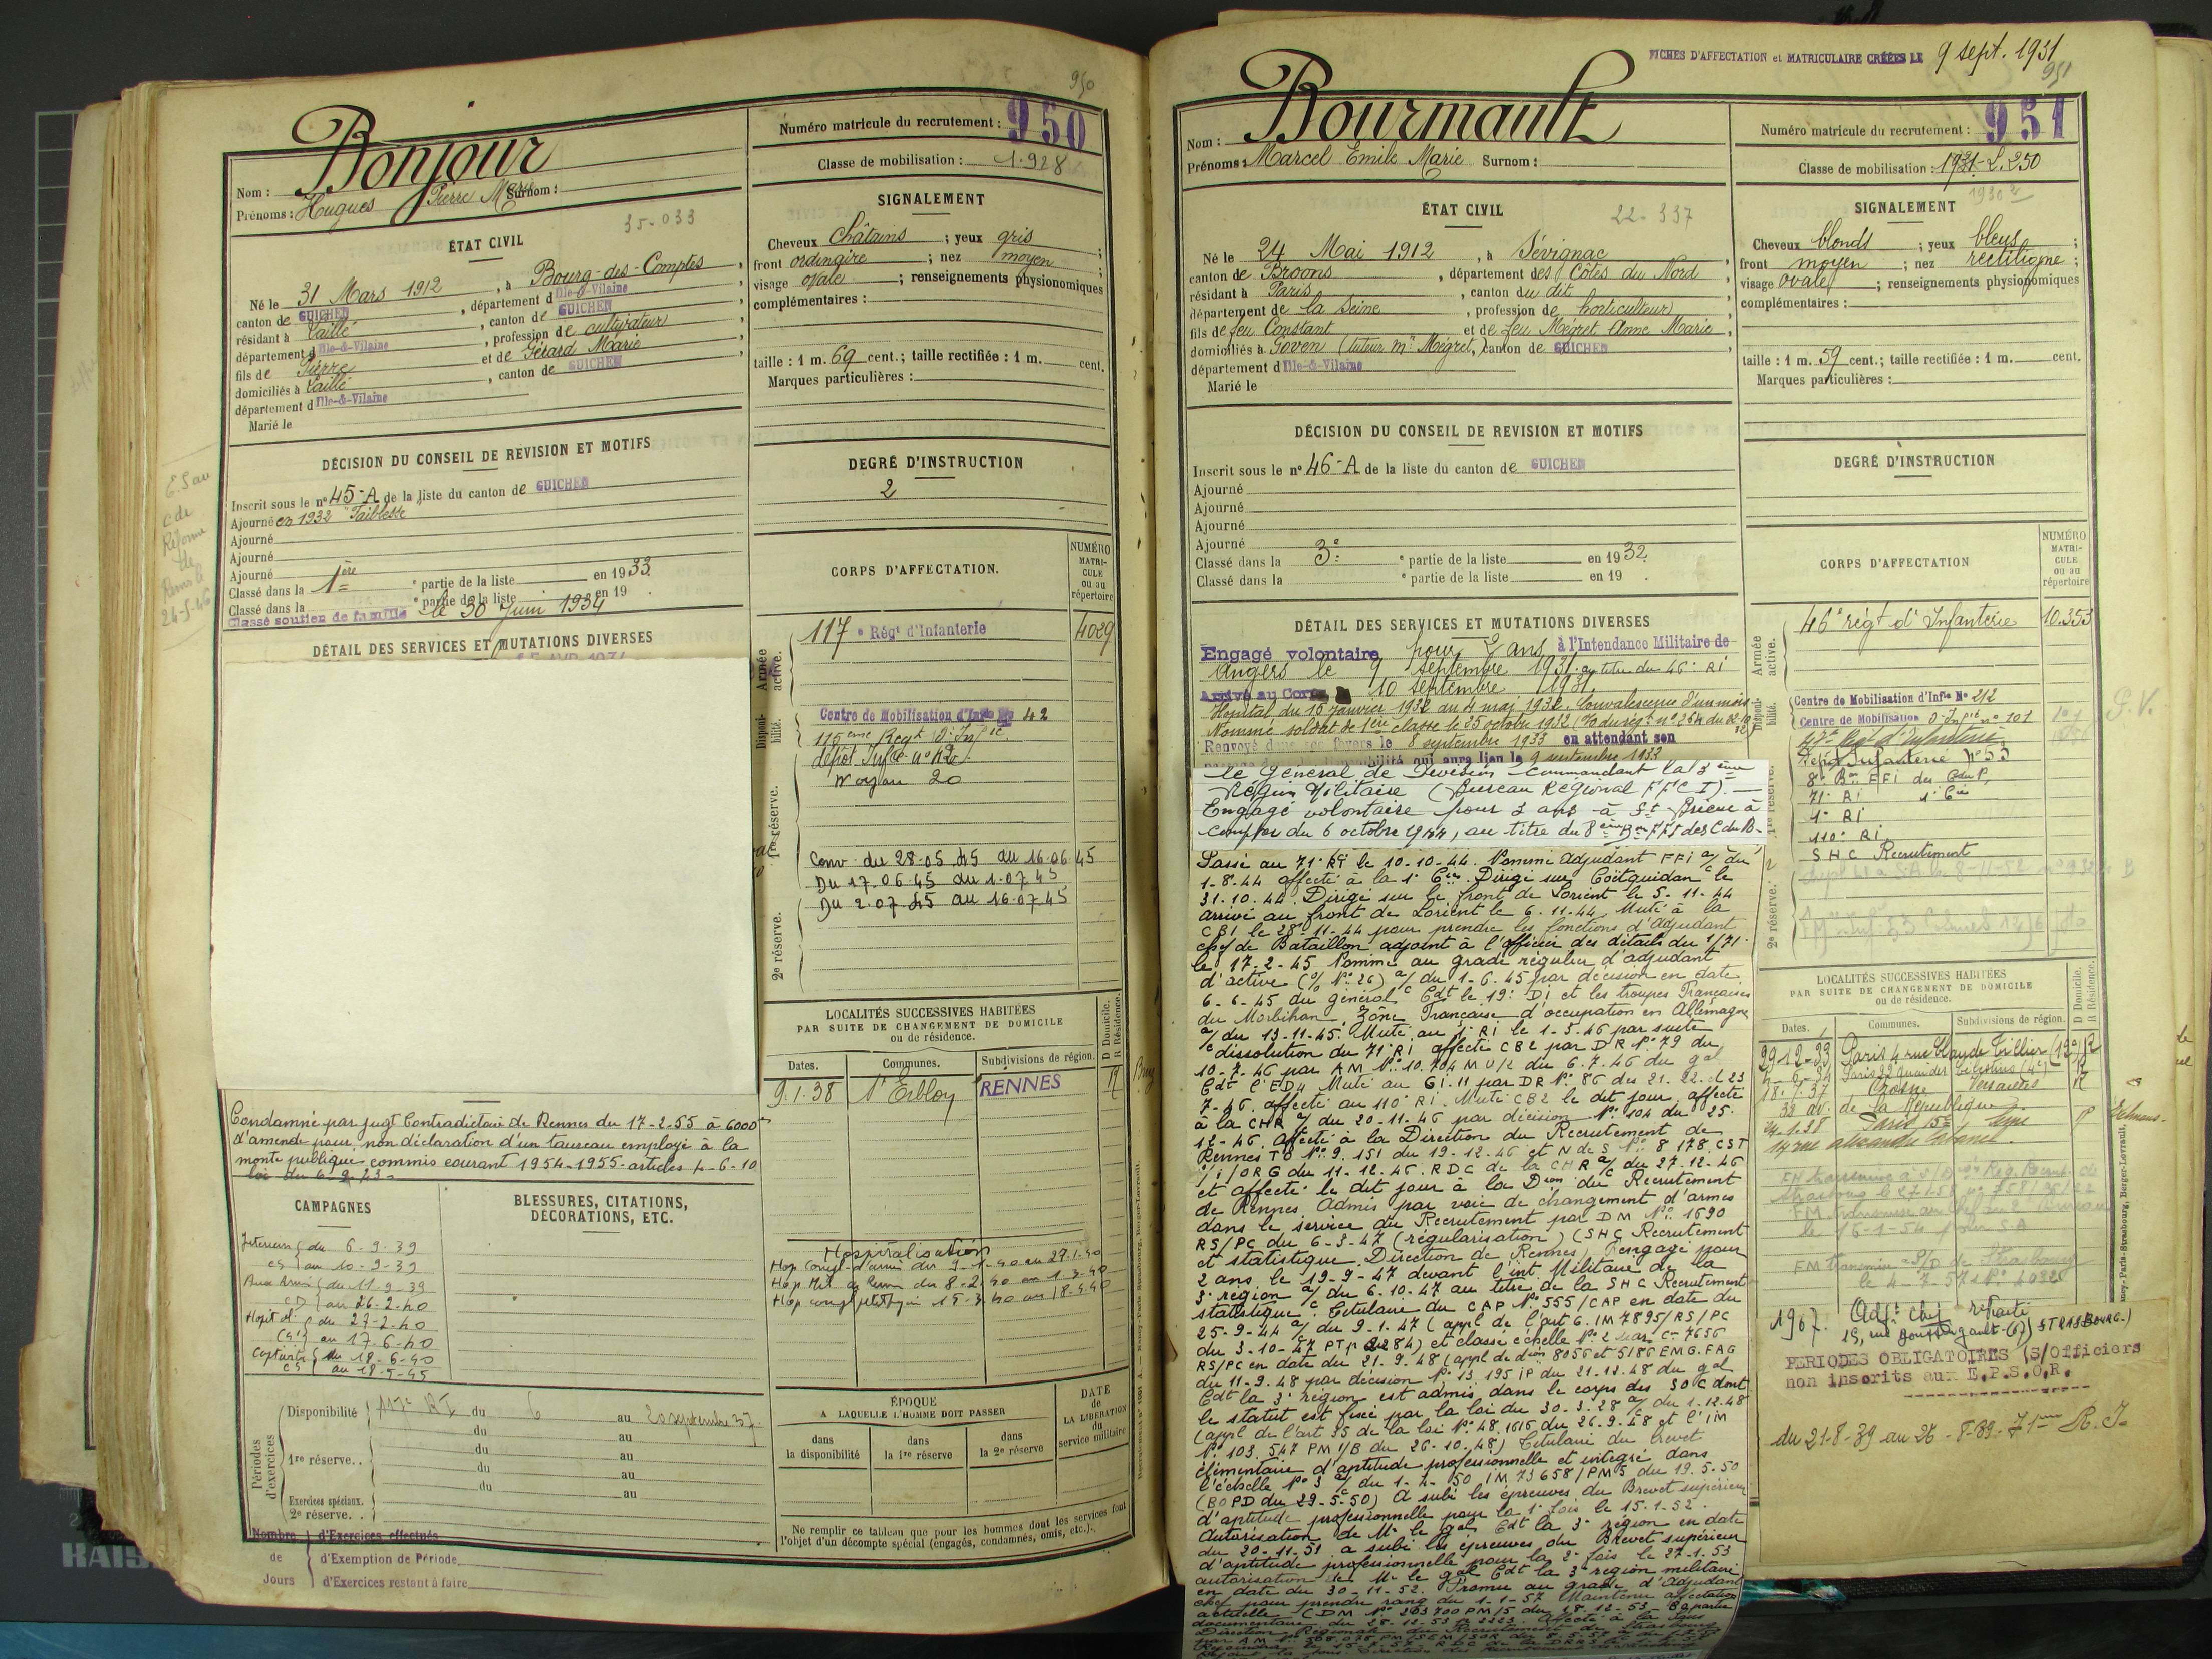 950
Bonjour
Nom :
Prénoms : Hugues Pierre Marie Surnom :
35-033
ÉTAT CIVIL
Né le 31 Mars 1912, à Bourg-des-Comptes,
canton de GUICHEN, département d Ille-&-Vilaine,
résidant à Laillé, canton de GUICHEN,
département d Ille-&-Vilaine, profession de cultivateur,
fils de Pierre et de Gérard Marie,
domiciliés à Laillé, canton de GUICHEN,
département d Ille-&-Vilaine
Marié le
DÉCISION DU CONSEIL DE REVISION ET MOTIFS
Inscrit sous le n° 45-A de la liste du canton de GUICHEN
Ajourné en 1932 "Faiblesse
Ajourné
Ajourné
Ajourné
Classé dans la 1ère e partie de la liste en 1933.
Classé dans la e partie de la liste en 19 .
Classé soutien de famille le 30 Juin 1934
DÉTAIL DES SERVICES ET MUTATIONS DIVERSES
Condamné par jugt Contradictoire de Rennes du 17-2-55 à 6000
d'amende pour non déclaration d'un taureau employé à la
monte publique commis courant 1954-1955- articles 4-6-10
CAMPAGNES
Intérieur du 6-9-39
CS au 10-9-39
Aux Armées du 11-9-39
CD au 26-2-40
du 27-2-40
au 17-6-40
Captivité du 18-6-40
CS au 18-5-45
BLESSURES, CITATIONS,
DÉCORATIONS, ETC.
Périodes d'exercices
Disponibilité 117e RI du 6 au 20 septembre 37.
du au
1re réserve. . du au
du au
du au
Exercices spéciaux.
2e réserve. . .
Nombre d'Exercices effectués
de d'Exemption de Période
Jours d'Exercices restant à faire
Numéro matricule du recrutement : 950
Classe de mobilisation : 1.928
SIGNALEMENT
Cheveux Châtains ; yeux gris ;
front ordinaire ; nez moyen ;
visage ovale ; renseignements physionomiques
complémentaires :
taille : 1 m. 69 cent.; taille rectifiée : 1 m. cent.
Marques particulières :
DEGRÉ D'INSTRUCTION
2
CORPS D'AFFECTATION.
NUMÉRO
MATRI-
CULE
ou au
répertoire
Armée active.
117e Régt d'Infanterie 4029
Disponibilité.
Centre de Mobilisation d'Infie No 42
115ème Regt d'Infie
dépôt Infie n° 42
Noyau 20
1re réserve.
Conv du 28-05-45 au 16-06-45
Du 17-06-45 au 1-07-45
Du 2-07-45 au 16-07-45
2e réserve.
LOCALITÉS SUCCESSIVES HABITÉES
PAR SUITE DE CHANGEMENT DE DOMICILE
ou de résidence.
Dates. Communes. Subdivisions de région. D Domicile. R Résidence.
9.1.38 St Erblon RENNES R
Hospitalisation
ÉPOQUE
A LAQUELLE L'HOMME DOIT PASSER
DATE
de
LA LIBÉRATION
du
service militaire
dans
la disponibilité
dans
la 1re réserve
dans
la 2e réserve
Ne remplir ce tableau que pour les hommes dont les services font
l'objet d'un décompte spécial (engagés, condamnés, omis, etc.).
FICHES D'AFFECTATION et MATRICULAIRE CRÉÉES LE 9 sept. 1931
951
Bourmault
Nom :
Prénoms : Marcel Emile Marie Surnom :
ÉTAT CIVIL
22-337
Né le 24 Mai 1912, à Sévignac,
canton de Broons, département des Côtes du Nord,
résidant à Paris, canton du dit,
département de la Seine, profession de horticulteur,
fils de feu Constant et de feu Mégret Anne Marie,
domiciliés à Goven (tuteur Mr Mégret,) canton de GUICHEN,
département d Ille-&-Vilaine
Marié le
DÉCISION DU CONSEIL DE REVISION ET MOTIFS
Inscrit sous le n° 46-A de la liste du canton de GUICHEN
Ajourné
Ajourné
Ajourné
Ajourné
Classé dans la 3e e partie de la liste en 1932.
Classé dans la e partie de la liste en 19 .
DÉTAIL DES SERVICES ET MUTATIONS DIVERSES
Engagé volontaire pour 2 ans à l'Intendance Militaire de
Angers le 9 septembre 1931 au titre du 46e RI
Arrivé au Corps 10 septembre 1931.
Hopital du 16 janvier 1932 au 4 mai 1932. Convalescence d'un mois
Nommé soldat de 1ère classe le 25 octobre 1932
Renvoyé dans ses foyers le 8 septembre 1933 en attendant son
le Général de Division Commandant la 3ème
Région Militaire (Bureau Régional FFCI).
Engagé volontaire pour 3 ans à St Brieuc à
compter du 6 octobre 1944, au titre du 8ème Bon FFI des C du N-
Passé au 71e RI le 10-10-44. Nommé adjudant FFI a/c du
1-8-44 affecté à la 1e Cie. Dirigé sur Coëtquidan le
31-10-44. Dirigé sur le front de Lorient le 5-11-44
arrivé au front de Lorient le 6-11-44 Muté à la
CB1 le 28-11-44 pour prendre les fonctions d'adjudant
chef de Bataillon adjoint à l'officier des détails du 1/71
le 17-2-45 Nommé au grade régulier d'adjudant
d'active (O/ N° 26) a/c du 1-6-45 par décision en date
6-6-45 du général Cdt le 19e DI et les troupes Françaises
du Morbihan, Zone Française d'occupation en Allemagne
a/c du 13-11-45. Muté au 1e RI le 1-3-46 par suite
dissolution du 71e RI affecté CB2 par DR N° 79 du
10-7-46 par AM N° 10.704 MU/2 du 6-7-46 du gal
Cdt l'ED4 Muté au GI.11 par DR N° 86 des 21.22.23
7-46. affecté au 110e RI. Muté CB2 le dit jour, affecté
à la CHR a/c du 20-11-46 par décision N° 104 du 25-
12-46. Affecté à la Direction du Recrutement de
Rennes TO N° 9.151 du 19-12-46 et N de S N° 8178 CST
/1/ORG du 11-12-46. RDC de la CHR a/c du 27-12-46
et affecté le dit jour à la Dion du Recrutement
de Rennes Admis par voie de changement d'armes
dans le service du Recrutement par DM N° 1690
RS/PC du 6-3-47 (régularisation) (SHC Recrutement
et statistique, Direction de Rennes) Rengagé pour
2 ans le 19-9-47 devant l'int. Militaire de la
3e région a/c du 6-10-47 au titre de la SHC Recrutement
statistique. Titulaire du CAP N° 555/CAP en date du
25-9-44 a/c du 9-1-47 (appl de l'art 6. IM 7895/RS/PC
du 3-10-47 et classé échelle N° 2
RS/PC en date du 21-9-48 (appl de dion 8056 et 5186 EMG.FAG
du 11-9-48 par décision N° 13.195 IP du 21-12-48 du gal
Cdt la 3e région est admis dans le corps des SOC dont
le statut est fixé par la loi du 30-3-28 a/c du 1-12-48
(appl de l'art 35 de la loi N° 48.1616 du 26-9-48 et l'IM
N° 103.547 PM1/B du 26-10-48) Titulaire du brevet
élémentaire d'aptitude professionnelle et intégré dans
l'échelle N° 3 a/c du 1-4-50 IM 73658/PM5 du 19-5-50
(BOPD du 29-5-50) A subi les épreuves du Brevet supérieur
d'aptitude professionnelle pour la 1e fois le 15-1-52.
Autorisation de Mr le gal Cdt la 3e région en date
du 20-11-51 a subi les épreuves du Brevet supérieur
d'aptitude professionnelle pour la 2e fois le 27-1-53
autorisation de Mr le gal Cdt la 3e région militaire
en date du 30-11-52. Promu au grade d'adjudant
chef pour prendre rang du 1-1-57 Maintenu affectation
Numéro matricule du recrutement : 951
Classe de mobilisation : 1931-L.250
SIGNALEMENT
Cheveux blonds ; yeux bleus ;
front moyen ; nez rectiligne ;
visage ovale ; renseignements physionomiques
complémentaires :
taille : 1 m. 59 cent.; taille rectifiée : 1 m. cent.
Marques particulières :
DEGRÉ D'INSTRUCTION
CORPS D'AFFECTATION
NUMÉRO
MATRI-
CULE
ou au
répertoire
Armée active.
46e régt d'Infanterie 10.353
Centre de Mobilisation d'Infie No 212
Centre de Mobilisation d'Infie n° 101
47e Régt d'Infanterie
Dépôt Infanterie N° 53
8e Bon FFI des C du N,
71e RI 1e Cie
1e RI
110e RI
SHC Recrutement
2e réserve.
LOCALITÉS SUCCESSIVES HABITÉES
PAR SUITE DE CHANGEMENT DE DOMICILE
ou de résidence.
Dates. Communes. Subdivisions de région. D Domicile. R Résidence.
29-12-33 Paris 4 rue Claude Tillier (12e) R
Paris 22 quai des Célestins (4e) R
18.7.37 Crosne Versailles R
32 av. de la République
24.1.38 Paris 15e Seine R
14 rue Alexandre Cabanel
1967. Adjt chef retraité
15, rue Boussingault (67) STRASBOURG.)
PERIODES OBLIGATOIRES (S/Officiers
non inscrits aux E.P.S.O.R.
du 21-8-39 au 26-8-39- 71ème R.I.